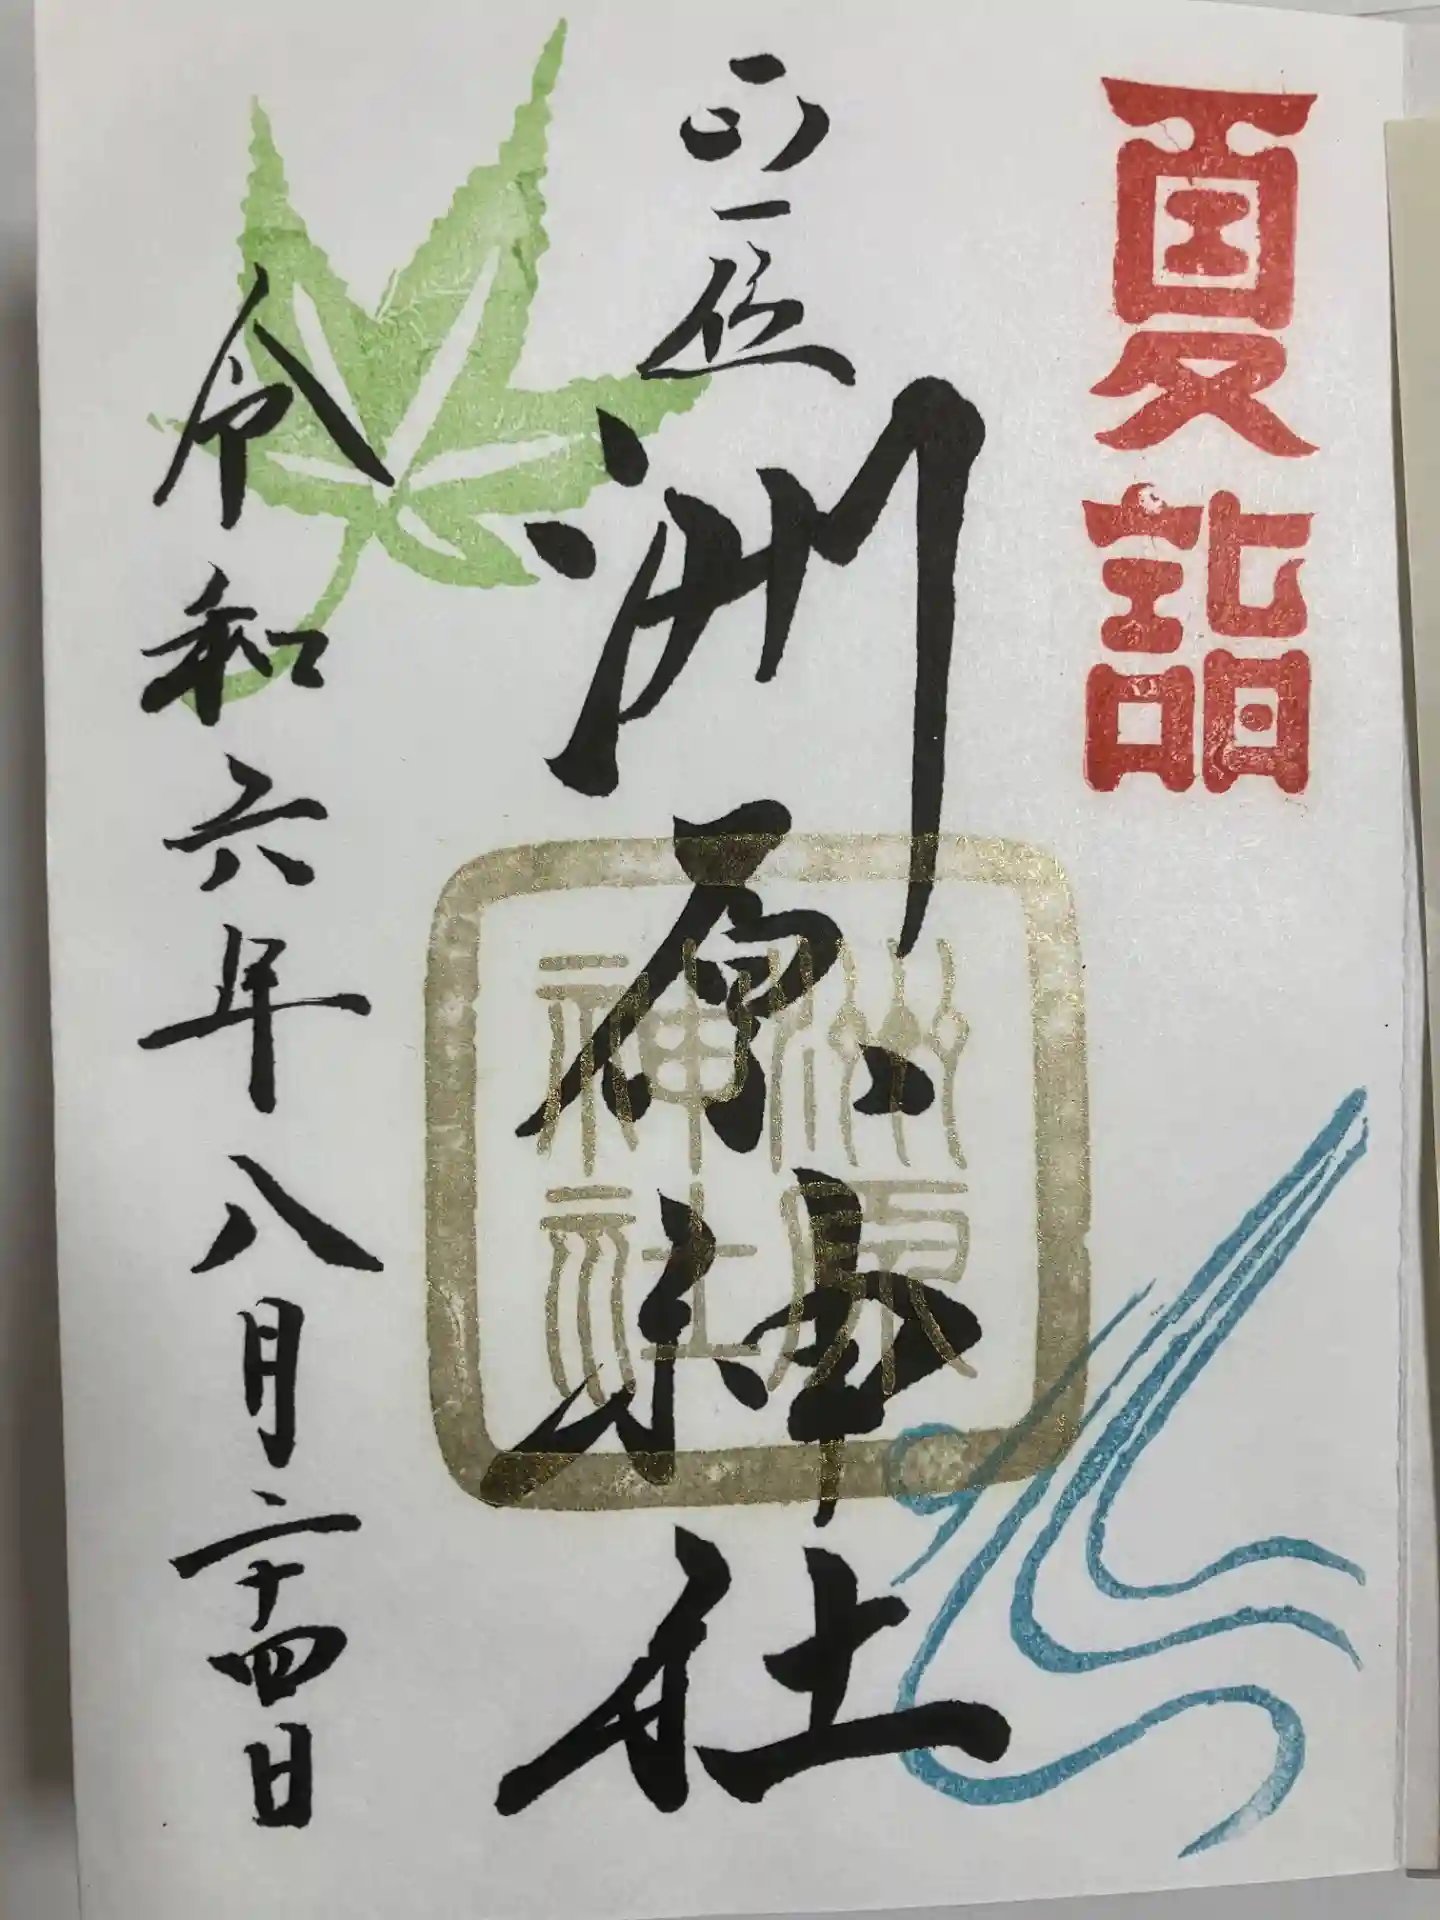 夏詣
正一位
洲原神社
洲原
神社
令和六年八月二十四日